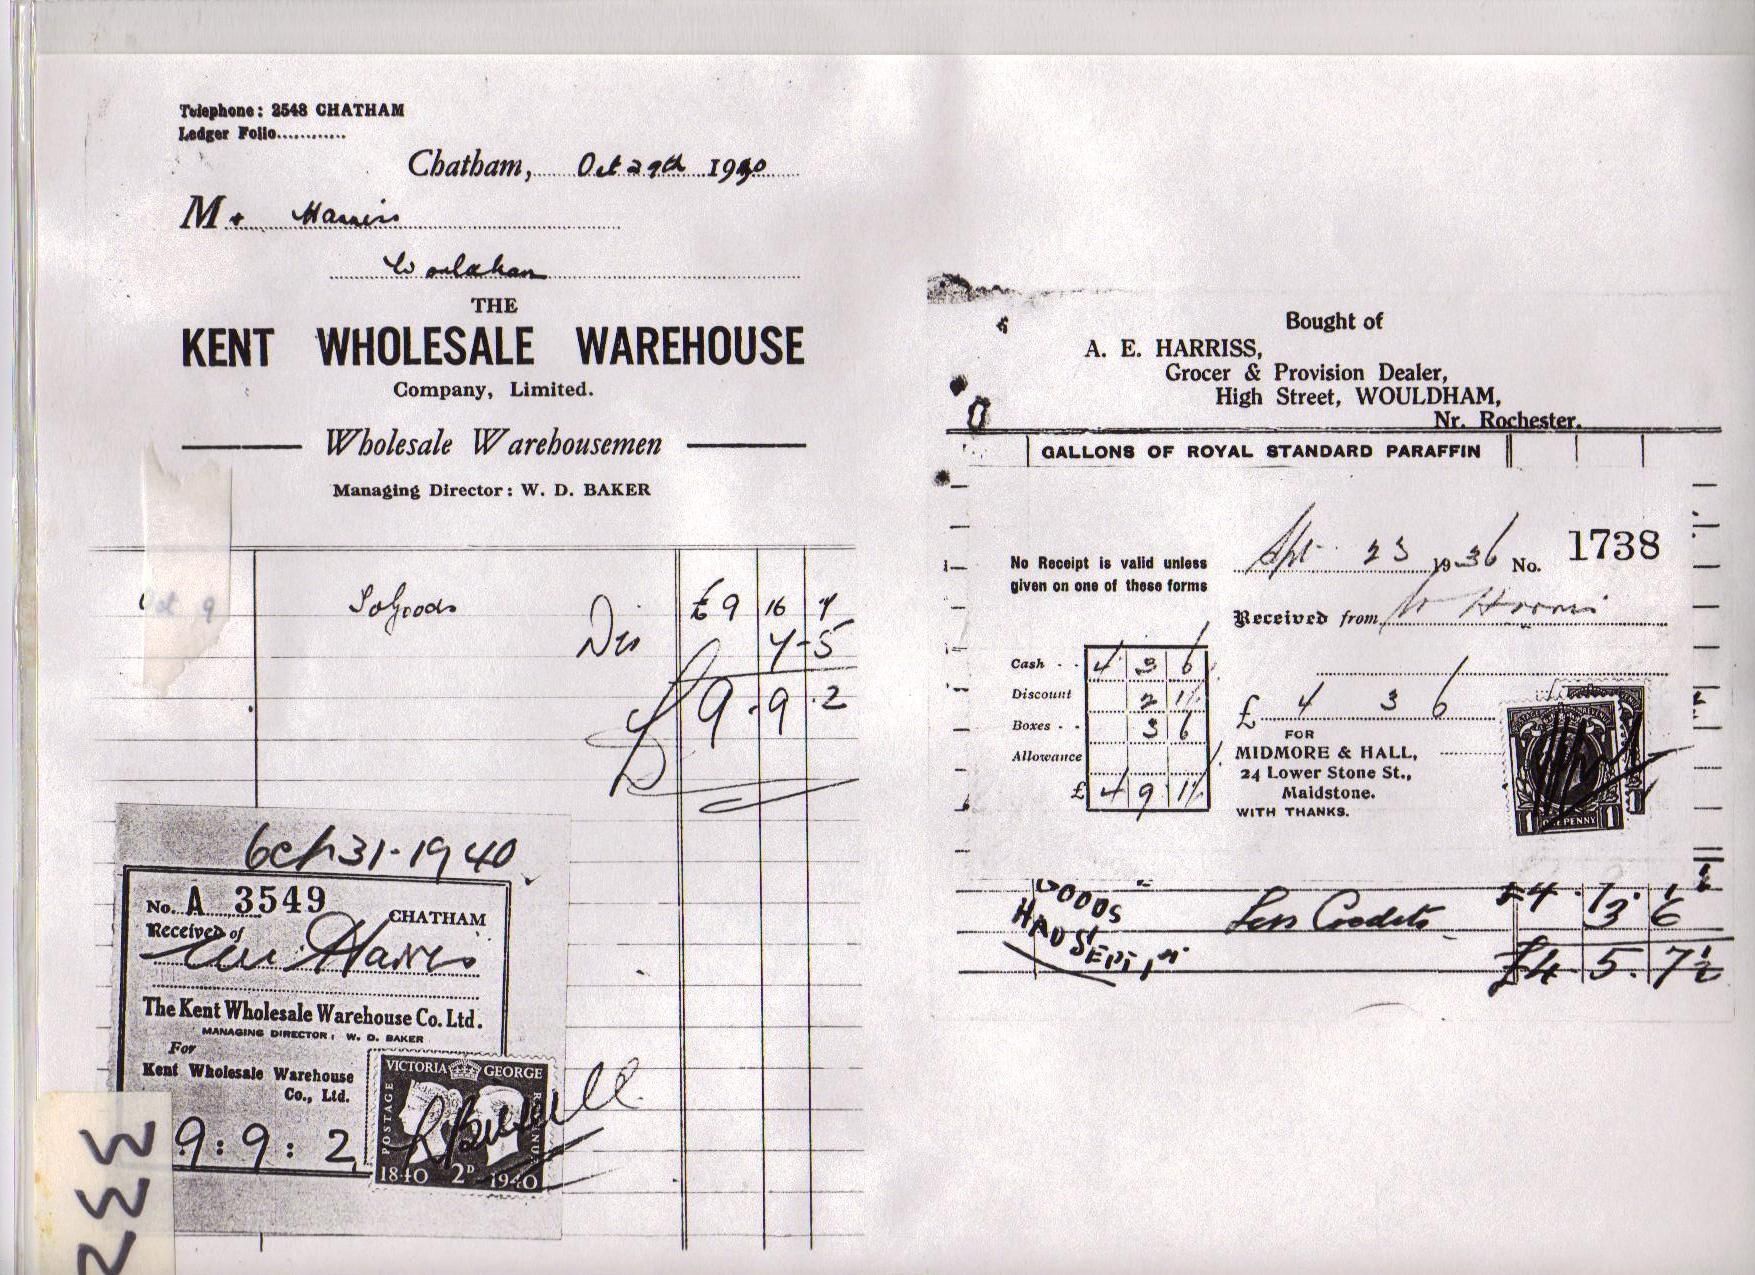 Telephone: 2548 CHATHAM
Ledger Folio............
Chatham, Oct 29th 1940
Mr Harris
Wouldham
THE
KENT WHOLESALE WAREHOUSE
Company, Limited.
Wholesale Warehousemen
Managing Director: W. D. BAKER
Oct 9 To Goods £9 16 7
Dis 7-5
£9.9.2
Oct 31-1940
No. A 3549
CHATHAM
Received of
Harris
The Kent Wholesale Warehouse Co. Ltd.
MANAGING DIRECTOR: W. D. BAKER
For
Kent Wholesale Warehouse
Co., Ltd.
9:9:2
VICTORIA GEORGE
POSTAGE REVENUE
1840 2D 1940
332
Bought of
A. E. HARRISS,
Grocer & Provision Dealer,
High Street, WOULDHAM,
Nr. Rochester.
GALLONS OF ROYAL STANDARD PARAFFIN
No Receipt is valid unless
given on one of these forms
Sept 23 1936 No. 1738
Received from Harris
Cash - - 4 3 6
Discount 2 1½
Boxes - - 3 6
Allowance
£ 4 9 1½
£ 4 3 6
FOR
MIDMORE & HALL,
24 Lower Stone St.,
Maidstone.
WITH THANKS.
1 ONE PENNY 1
GOODS
HAD SEPT 1st
Less Credits
£4. 5. 7½